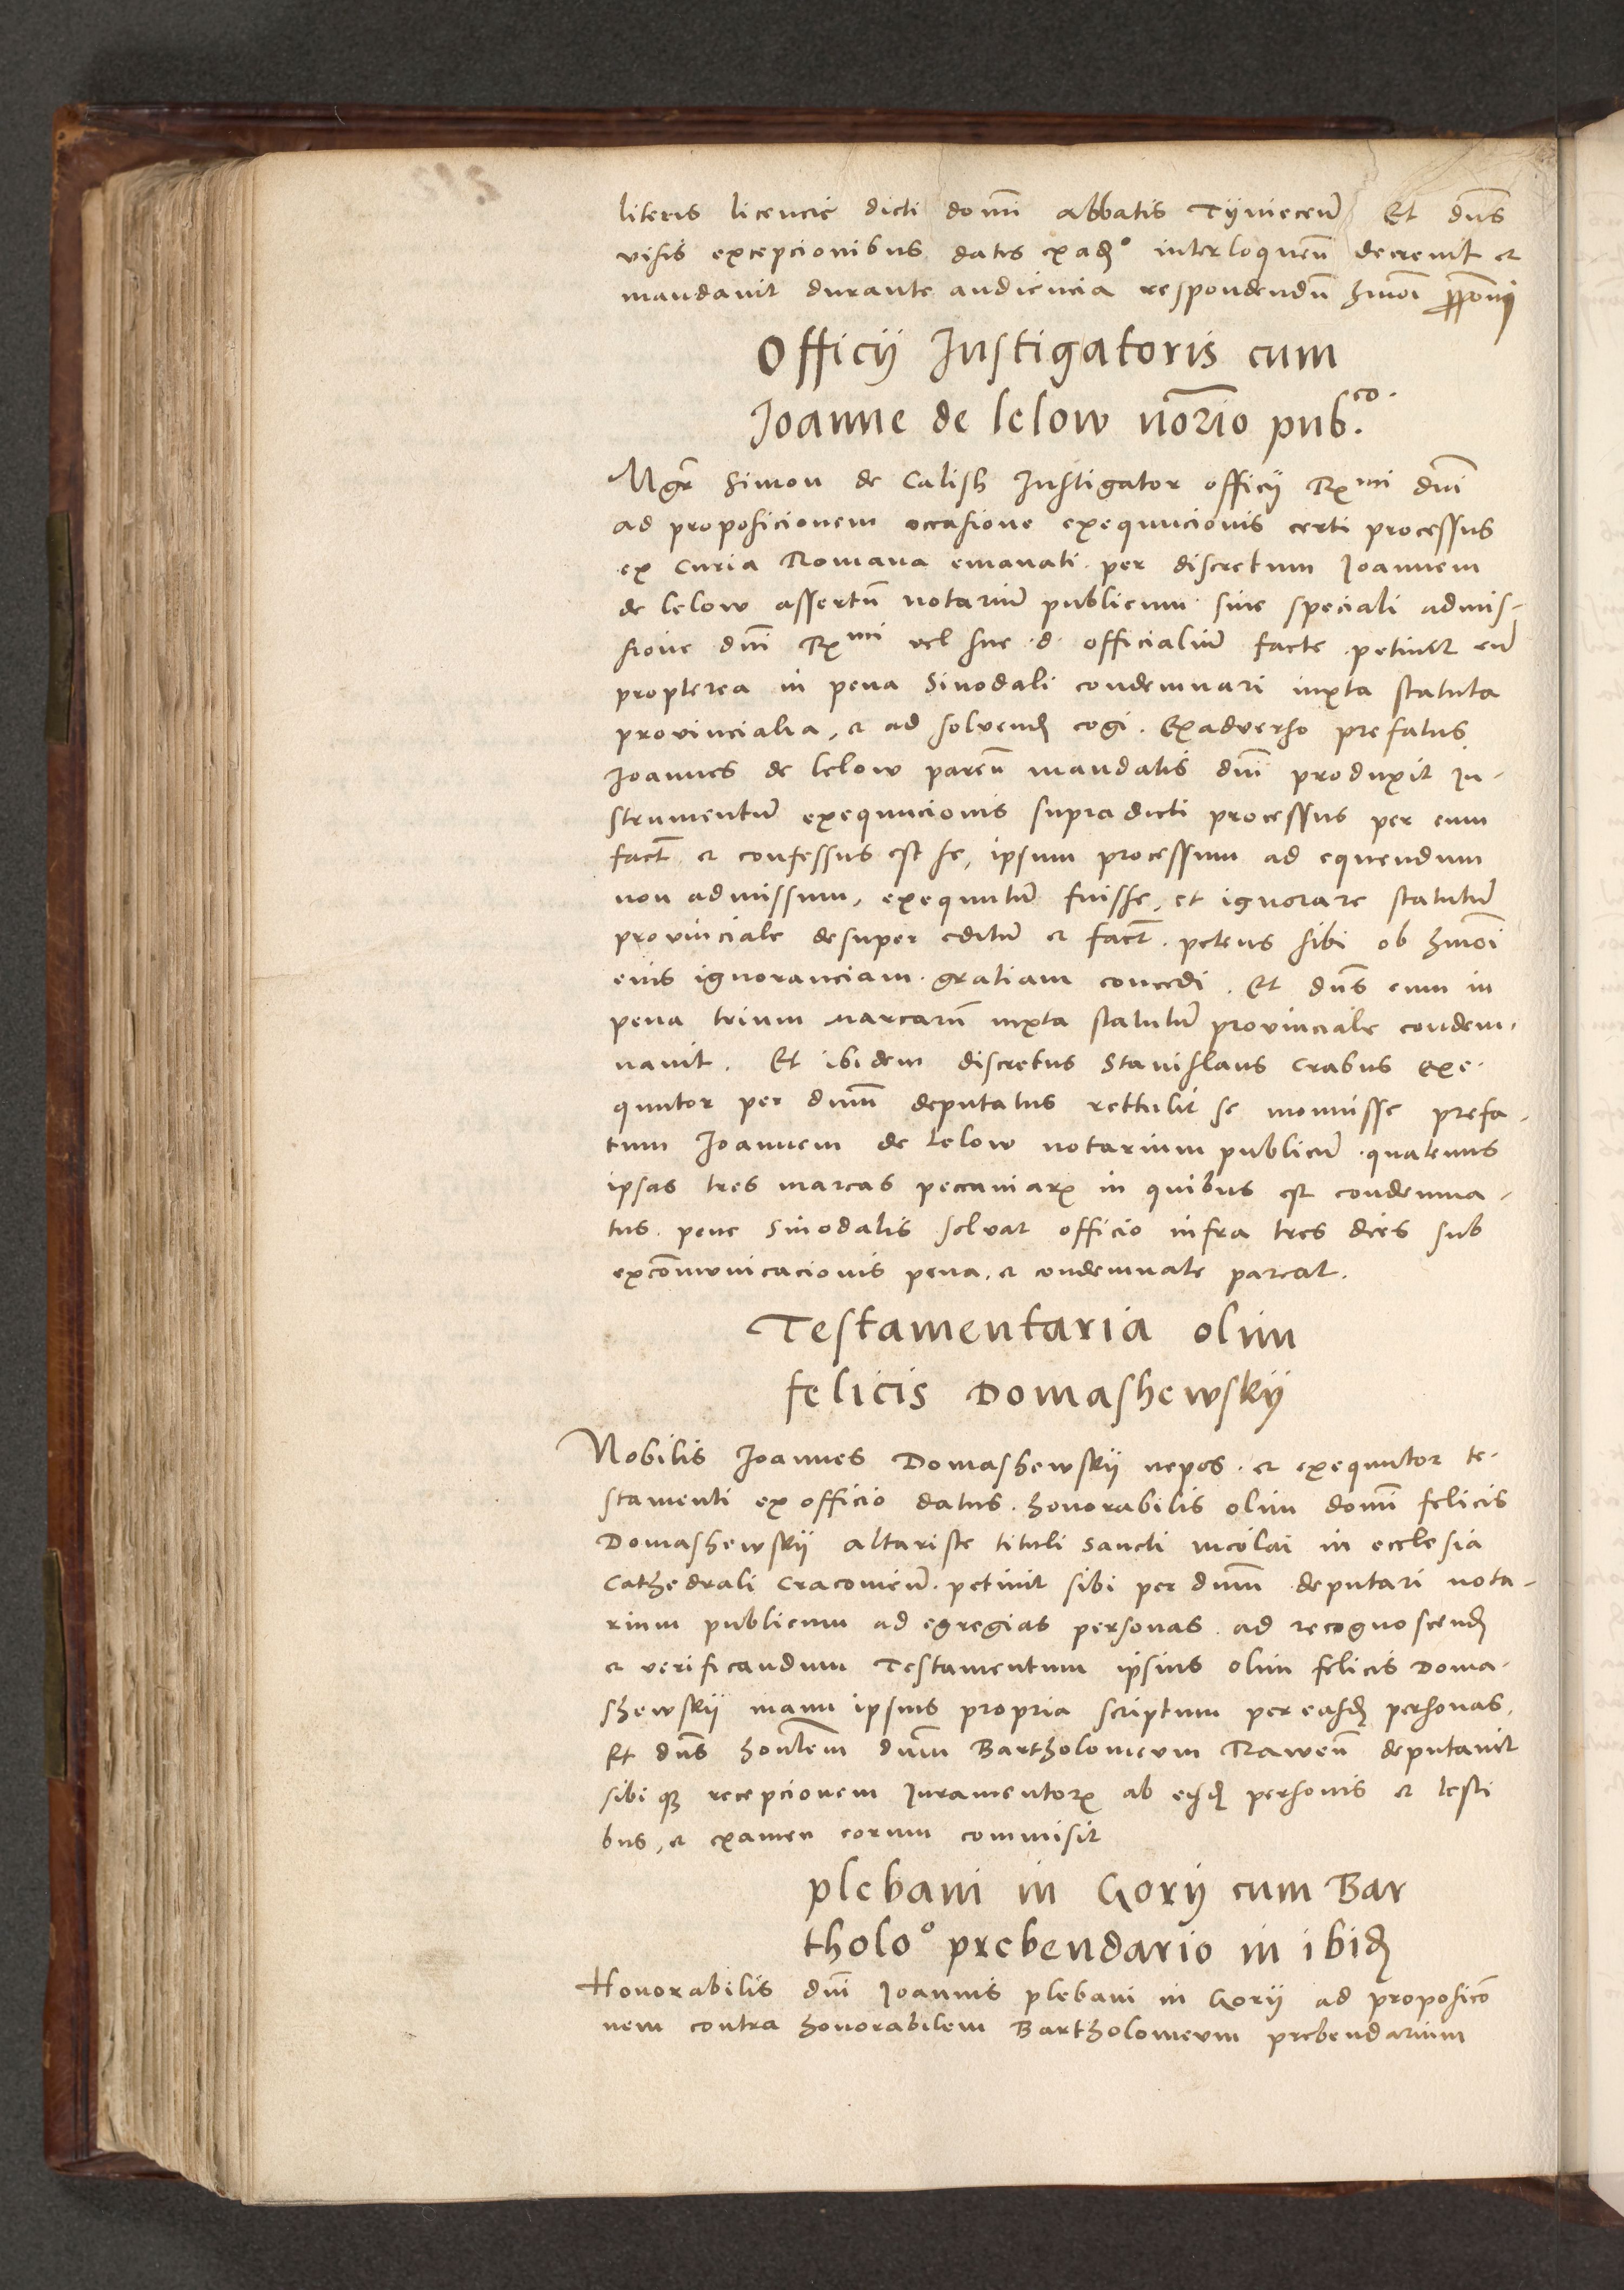 literis licencie dicti domi abbatis Tyniecen̄ Et dn̄s
visis excepcionibus datis exadꝰ interloquen̄ decrevit et
mandavit durante audiencia respondendū hmōi
Officij Instigatoris cum
Joanne de lelow nōrio pub.co
Mgr̄ Simon de Calish Instigator officij Rmi dn̄i
ad proposicionem occasione exequucionis certi processus
ex Curia Romana emanati per discretum Joannem
de lelow assertū notariū publicum sine speciali admis-
sione dn̄i Rmi vel sue d. officialiū facte petivit eū
propterea in pena Sinodali condemnari iuxta statuta
provincialia, et ad solvend̄ cogi. Exadverso prefatus
Joannes de lelow paren̄ mandatis dn̄i produxit In-
strumentū exequucionis supradicti processus per eum
fact̄ et confessus est se, ipsum processum ad equendum
non admissum, exequutū fuisse, et ignorare statutū
provinciale desuper editū et fact̄. petens sibi ob hmōi
eius ignoranciam gratiam concedi. Et dn̄s eum in
pena trium marcarū iuxta statutū provinciale condem-
navit. Et ibidem discretus Stanislaus Crabus exe-
quutor per dnū̄m deputatus rettulit se monuisse prefa-
tum Joannem de Lelow notarium publicū quatenus
ipsas tres marcas peccuniarꝝ in quibus est condemna-
tus pene Sinodalis solvat officio infra tres dies sub
excōmunicacionis pena. et condemnate pareat.
Testamentaria olim
felicis Domashewskij
Nobilis Joannes Domashewskij nepos et exequutor te-
stamenti ex officio datus honorabilis olim domi felicis
Domashewskij altariste tituli Sancti nicolai in ecclesia
Cathedrali Cracovien̄ petivit sibi per dnū̄m deputari nota-
rium publicum ad egregias personas ad recognoscend̄
et verificandum Testamentum ipsius olim felicis Doma-
shewskij manu ipsius propria scriptum per easd̄ personas.
Et dn̄s honlēm dnū̄m Bartholomeum Rawen̄ deputavit
sibi qꝫ recepcionem Juramentorꝝ ab eisd̄ personis et testi
bus, et examen eorum commisit
plebani in Gorij cum Bar
tholoo prebendario in ibid̄
Honorabilis dn̄i Joannis plebani in Gorij ad proposicō
nem contra honorabilem Bartholomeum prebendarium